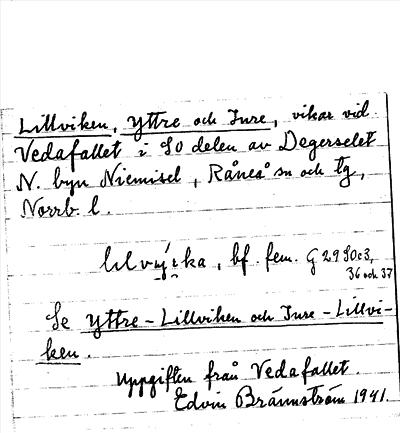 Lillviken, Yttre och Inre, vikar vid
Vedafallet i SO delen av Degerselet
N. byn Niemisel, Råneå sn och tg,
Norrb. l.
bf. fem. G 29 SO c3,
36 och 37
Se Yttre-Lillviken och Inre-Lillvi-
ken.
Uppgiften från Vedafallet.
Edvin Brännström 1941.